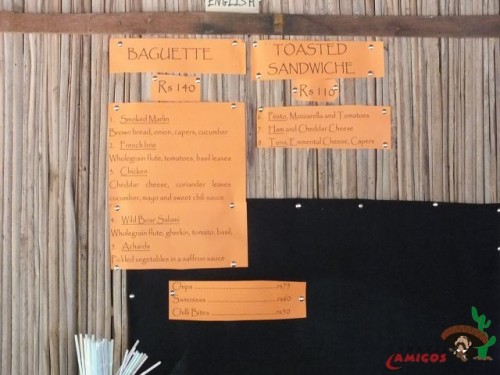 ENGLISH
BAGUETTE
Rs 140
1. Smoked Marlin
Brown bread, onion, capers, cucumber
2. Frenchine
Wholegrain flute, tomatoes, basil leaves
3. Chicken
Cheddar cheese, coriander leaves
cucumber, mayo and sweet chili sauce
4. Wild Boar Salami
Wholegrain flute, gherkin, tomato, basil,
5. Achards
Pickled vegetables in a saffron sauce
TOASTED
SANDWICHE
Rs 110
6. Pesto, Mozzarella and Tomatoes
7. Ham and Cheddar Cheese
8. Tuna, Emmental Cheese, Capers
Chips rs75
Samosas rs60
Chilli Bites rs50
AMIGOS